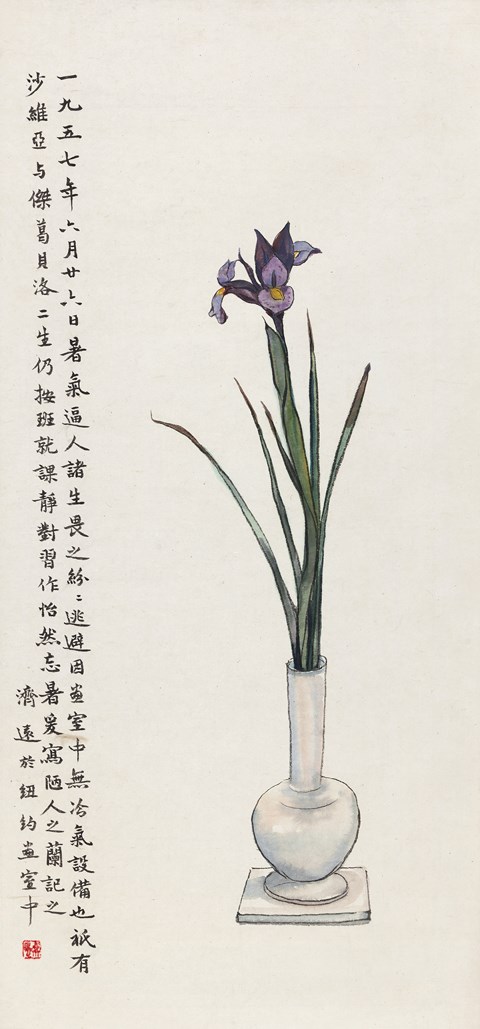 一九五七年六月廿六日暑氣逼人諸生畏之紛〻逃避因畫室中無冷氣設備也祇有
沙維亞与傑葛貝洛二生仍按班就課靜對習作怡然忘暑爰寫陋人之蘭記之
濟遠於紐約畫室中